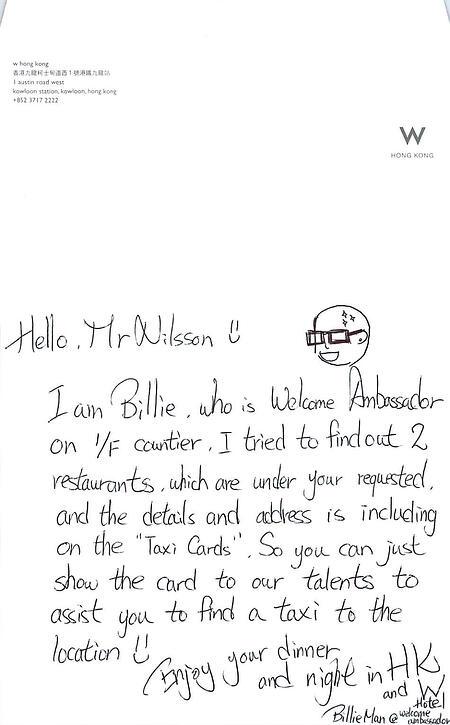 w hong kong
香港九龍柯士甸道西1號港鐵九龍站
1 austin road west
kowloon station, kowloon, hong kong
+852 3717 2222
W
HONG KONG
Hello, Mr Wilsson
I am Billie, who is Welcome Ambassador
on 1/F countier, I tried to find out 2
restaurants, which are under your requested,
and the details and address is including
on the "Taxi Cards", So you can just
show the card to our talents to
assist you to find a taxi to the
location
Enjoy your dinner
and night in HK
and W
Hotel
Billie Man @ welcome
ambassador